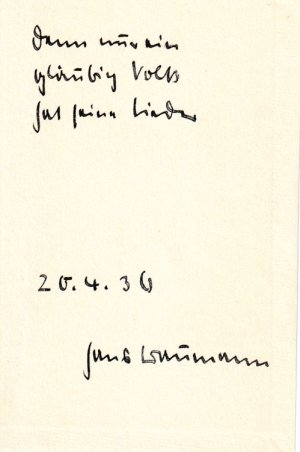 Denn nur ein
gläubig Volk
hat seine Lieder
20.4.36
Hans Baumann